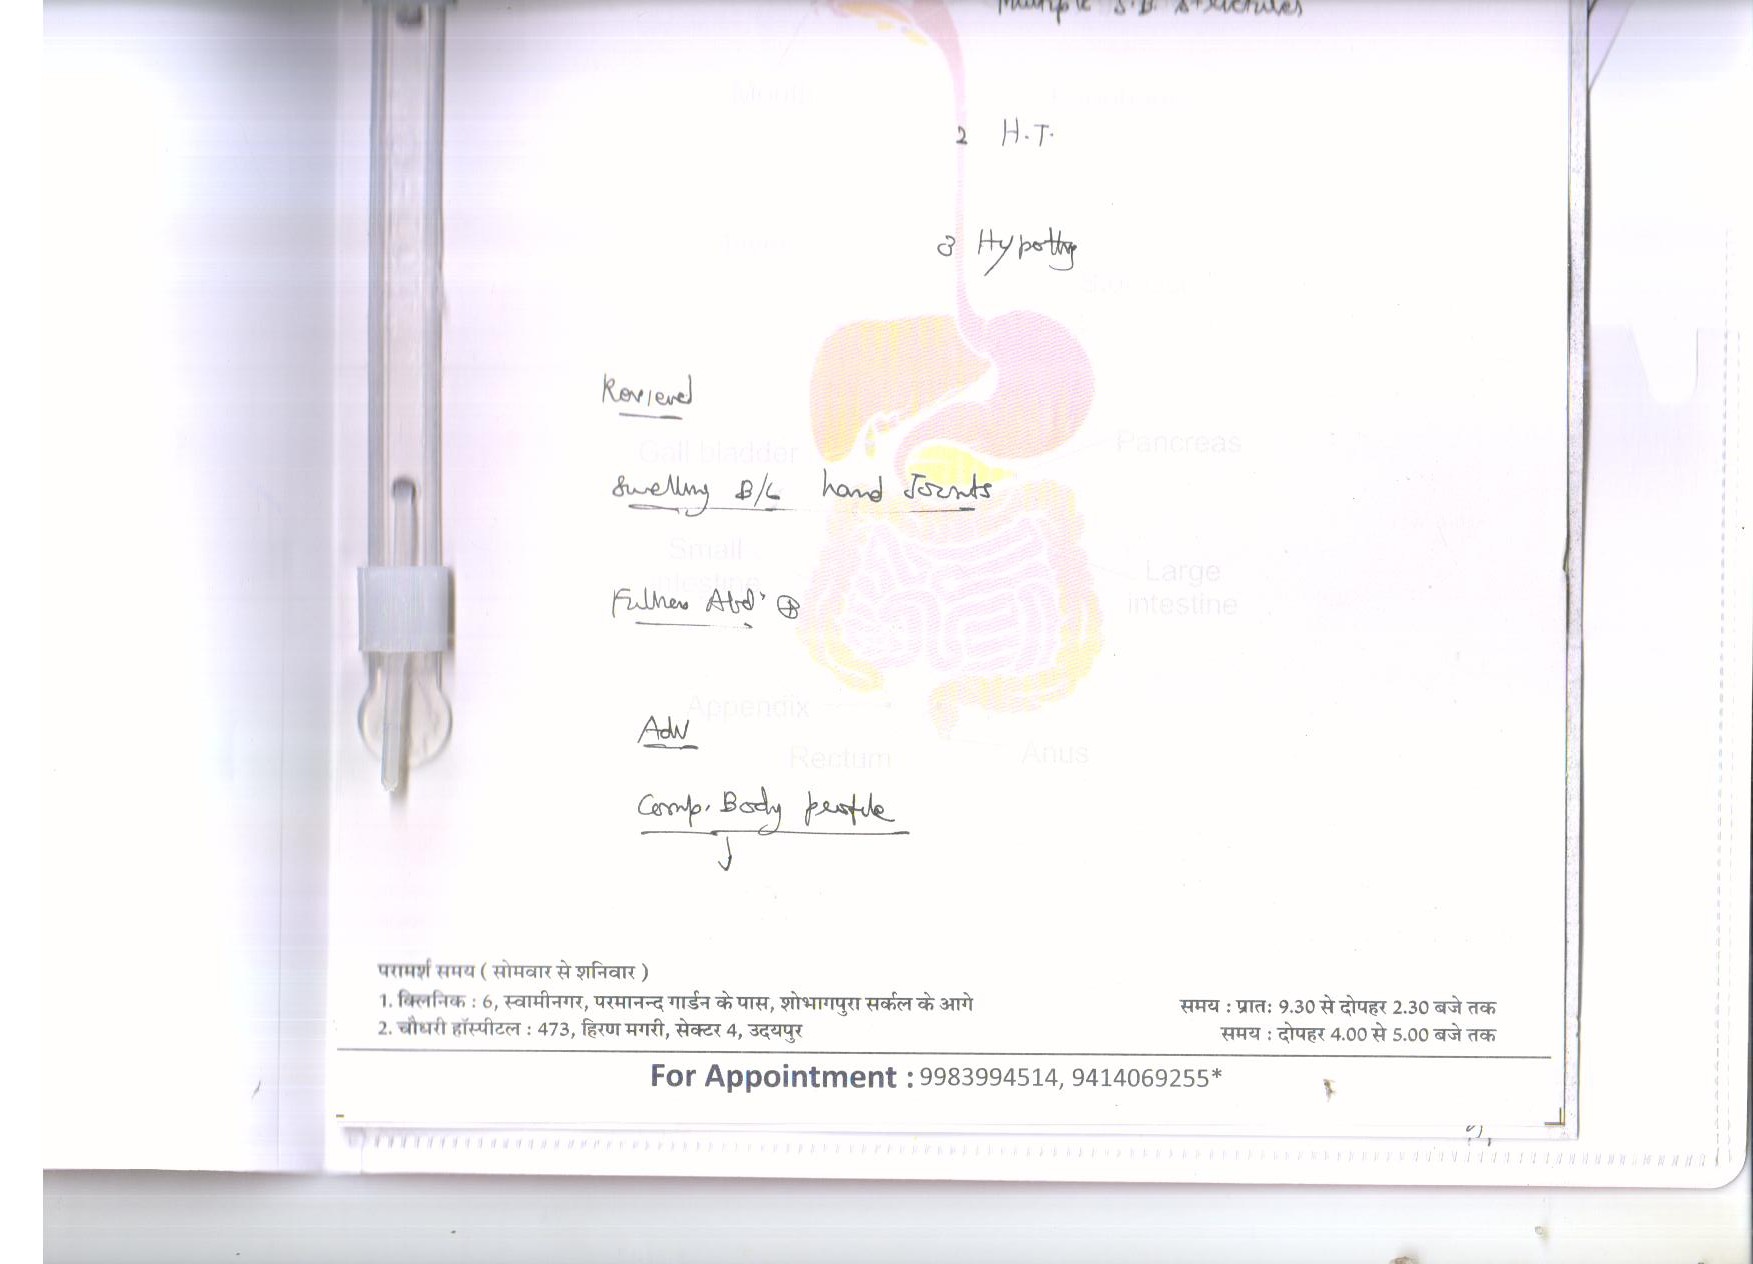 Multiple S.B. Strictures
2 H.T.
3 Hypothy
Reviewed
Swelling B/L hand Joints
Gall bladder
Pancreas
Small
intestine
Large
intestine
Fullness Abd' ⊕
Appendix
Adv
Rectum
Anus
Comp. Body profile
↓
परामर्श समय ( सोमवार से शनिवार )
1. क्लिनिक : 6, स्वामीनगर, परमानन्द गार्डन के पास, शोभागपुरा सर्कल के आगे समय : प्रातः 9.30 से दोपहर 2.30 बजे तक
2. चौधरी हॉस्पीटल : 473, हिरण मगरी, सेक्टर 4, उदयपुर समय : दोपहर 4.00 से 5.00 बजे तक
For Appointment : 9983994514, 9414069255*